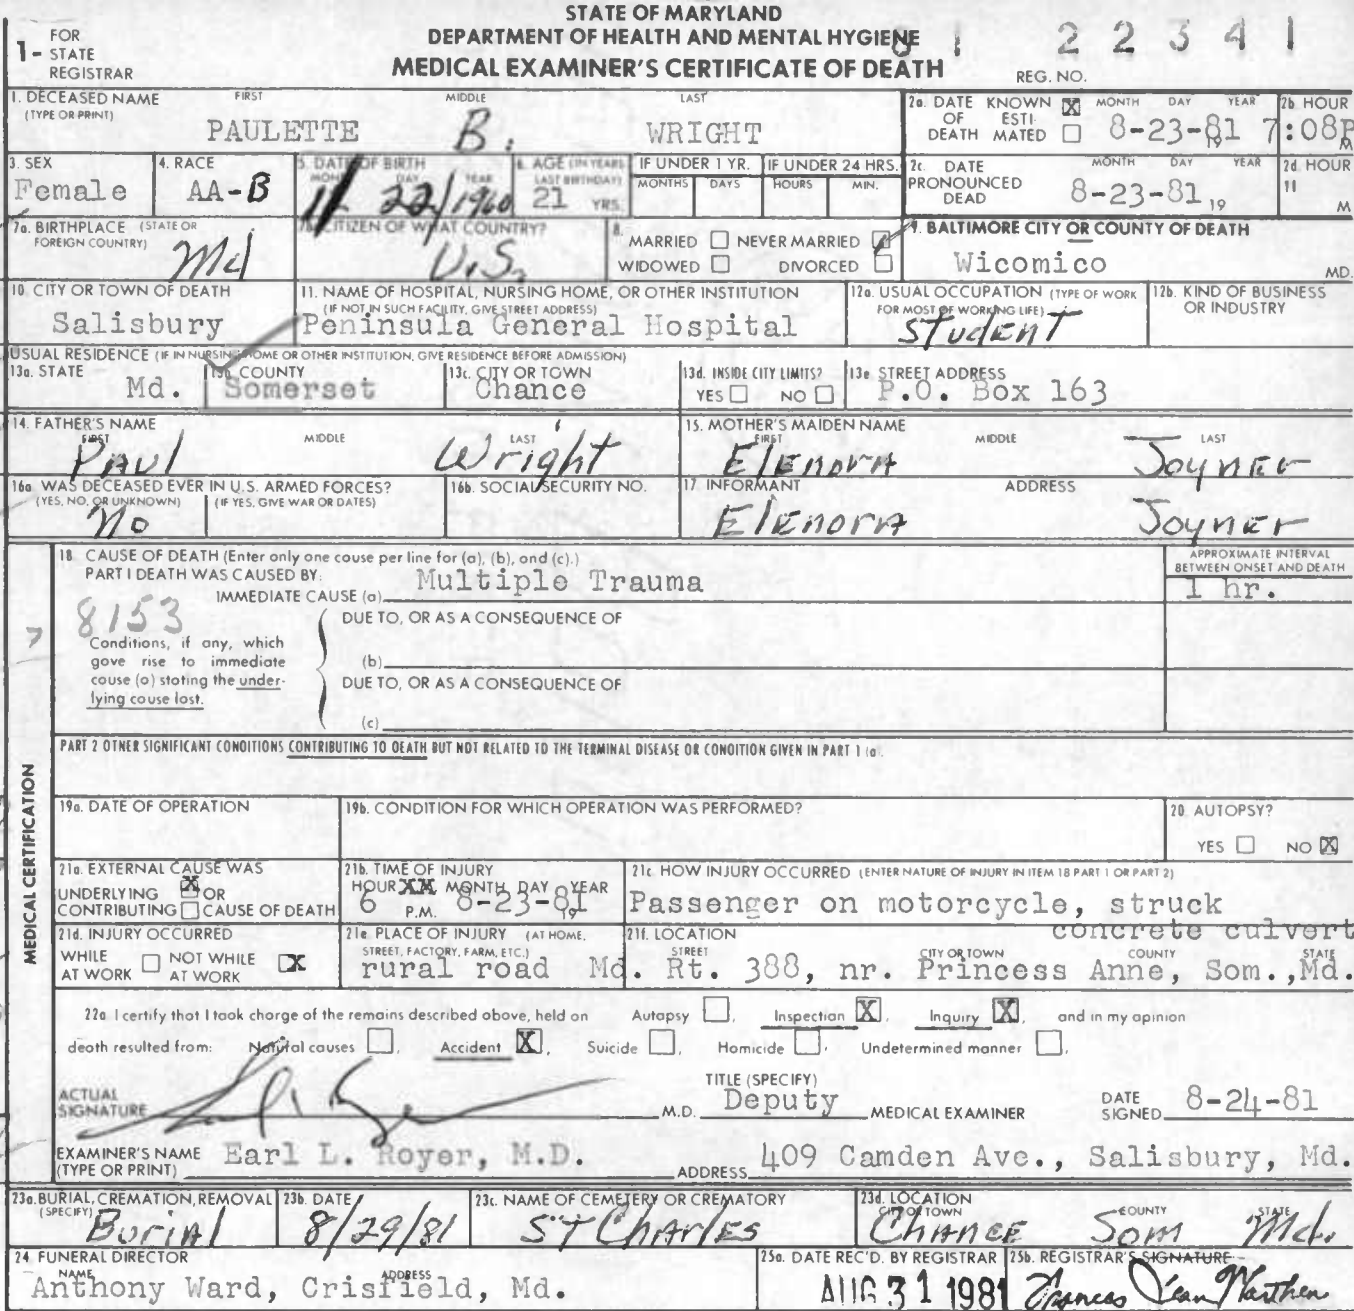 STATE OF MARYLAND
DEPARTMENT OF HEALTH AND MENTAL HYGIENE
MEDICAL EXAMINER'S CERTIFICATE OF DEATH
1- FOR STATE REGISTRAR
REG. NO. 81 22341
1. DECEASED NAME (TYPE OR PRINT) FIRST MIDDLE LAST
PAULETTE B. WRIGHT
2a. DATE OF DEATH KNOWN X ESTIMATED MONTH DAY YEAR 8-23-81 19
2b. HOUR 7:08P M
3. SEX Female
4. RACE AA-B
5. DATE OF BIRTH MONTH DAY YEAR 11 22/1960
6. AGE (IN YEARS LAST BIRTHDAY) 21 YRS.
IF UNDER 1 YR. MONTHS DAYS
IF UNDER 24 HRS. HOURS MIN.
2c. DATE PRONOUNCED DEAD MONTH DAY YEAR 8-23-81 19
2d. HOUR " M
7a. BIRTHPLACE (STATE OR FOREIGN COUNTRY) Md
7b. CITIZEN OF WHAT COUNTRY? U.S.
8. MARRIED NEVER MARRIED
WIDOWED DIVORCED
9. BALTIMORE CITY OR COUNTY OF DEATH
Wicomico MD.
10. CITY OR TOWN OF DEATH
Salisbury
11. NAME OF HOSPITAL, NURSING HOME, OR OTHER INSTITUTION
(IF NOT IN SUCH FACILITY, GIVE STREET ADDRESS)
Peninsula General Hospital
12a. USUAL OCCUPATION (TYPE OF WORK FOR MOST OF WORKING LIFE)
Student
12b. KIND OF BUSINESS OR INDUSTRY
USUAL RESIDENCE (IF IN NURSING HOME OR OTHER INSTITUTION, GIVE RESIDENCE BEFORE ADMISSION)
13a. STATE Md.
13b. COUNTY Somerset
13c. CITY OR TOWN Chance
13d. INSIDE CITY LIMITS? YES NO
13e. STREET ADDRESS P.O. Box 163
14. FATHER'S NAME FIRST MIDDLE LAST
Paul Wright
15. MOTHER'S MAIDEN NAME FIRST MIDDLE LAST
Elenora Joyner
16a. WAS DECEASED EVER IN U.S. ARMED FORCES?
(YES, NO, OR UNKNOWN) (IF YES, GIVE WAR OR DATES)
No
16b. SOCIAL SECURITY NO.
17. INFORMANT ADDRESS
Elenora Joyner
MEDICAL CERTIFICATION
18. CAUSE OF DEATH (Enter only one cause per line for (a), (b), and (c).)
PART I DEATH WAS CAUSED BY:
IMMEDIATE CAUSE (a) Multiple Trauma
APPROXIMATE INTERVAL BETWEEN ONSET AND DEATH
1 hr.
8153
Conditions, if any, which gave rise to immediate cause (a) stating the underlying cause last.
DUE TO, OR AS A CONSEQUENCE OF
(b)
DUE TO, OR AS A CONSEQUENCE OF
(c)
PART 2 OTHER SIGNIFICANT CONDITIONS CONTRIBUTING TO DEATH BUT NOT RELATED TO THE TERMINAL DISEASE OR CONDITION GIVEN IN PART 1 (a).
19a. DATE OF OPERATION
19b. CONDITION FOR WHICH OPERATION WAS PERFORMED?
20. AUTOPSY?
YES NO X
21a. EXTERNAL CAUSE WAS
UNDERLYING X OR
CONTRIBUTING CAUSE OF DEATH
21b. TIME OF INJURY
HOUR XX MONTH DAY YEAR
6 P.M. 8-23-81 19
21c. HOW INJURY OCCURRED (ENTER NATURE OF INJURY IN ITEM 18 PART 1 OR PART 2)
Passenger on motorcycle, struck
concrete culvert
21d. INJURY OCCURRED
WHILE AT WORK NOT WHILE AT WORK X
21e. PLACE OF INJURY (AT HOME, STREET, FACTORY, FARM, ETC.)
rural road
21f. LOCATION STREET CITY OR TOWN COUNTY STATE
Md. Rt. 388, nr. Princess Anne, Som., Md.
22a I certify that I took charge of the remains described above, held on Autopsy, Inspection X, Inquiry X, and in my opinion
death resulted from: Natural causes, Accident X, Suicide, Homicide, Undetermined manner,
ACTUAL SIGNATURE M.D.
TITLE (SPECIFY) Deputy MEDICAL EXAMINER
DATE SIGNED 8-24-81
EXAMINER'S NAME (TYPE OR PRINT) Earl L. Royer, M.D.
ADDRESS 409 Camden Ave., Salisbury, Md.
23a. BURIAL, CREMATION, REMOVAL (SPECIFY) Burial
23b. DATE 8/29/81
23c. NAME OF CEMETERY OR CREMATORY St Charles
23d. LOCATION CITY OR TOWN COUNTY STATE
Chance Som Md.
24. FUNERAL DIRECTOR NAME ADDRESS
Anthony Ward, Crisfield, Md.
25a. DATE REC'D. BY REGISTRAR AUG 31 1981
25b. REGISTRAR'S SIGNATURE Frances Jean Warthen